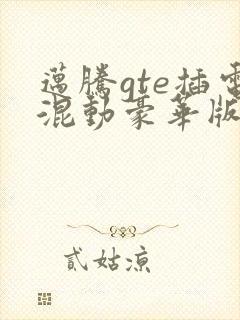 邁騰gte插電
混動豪華版
貳姑涼